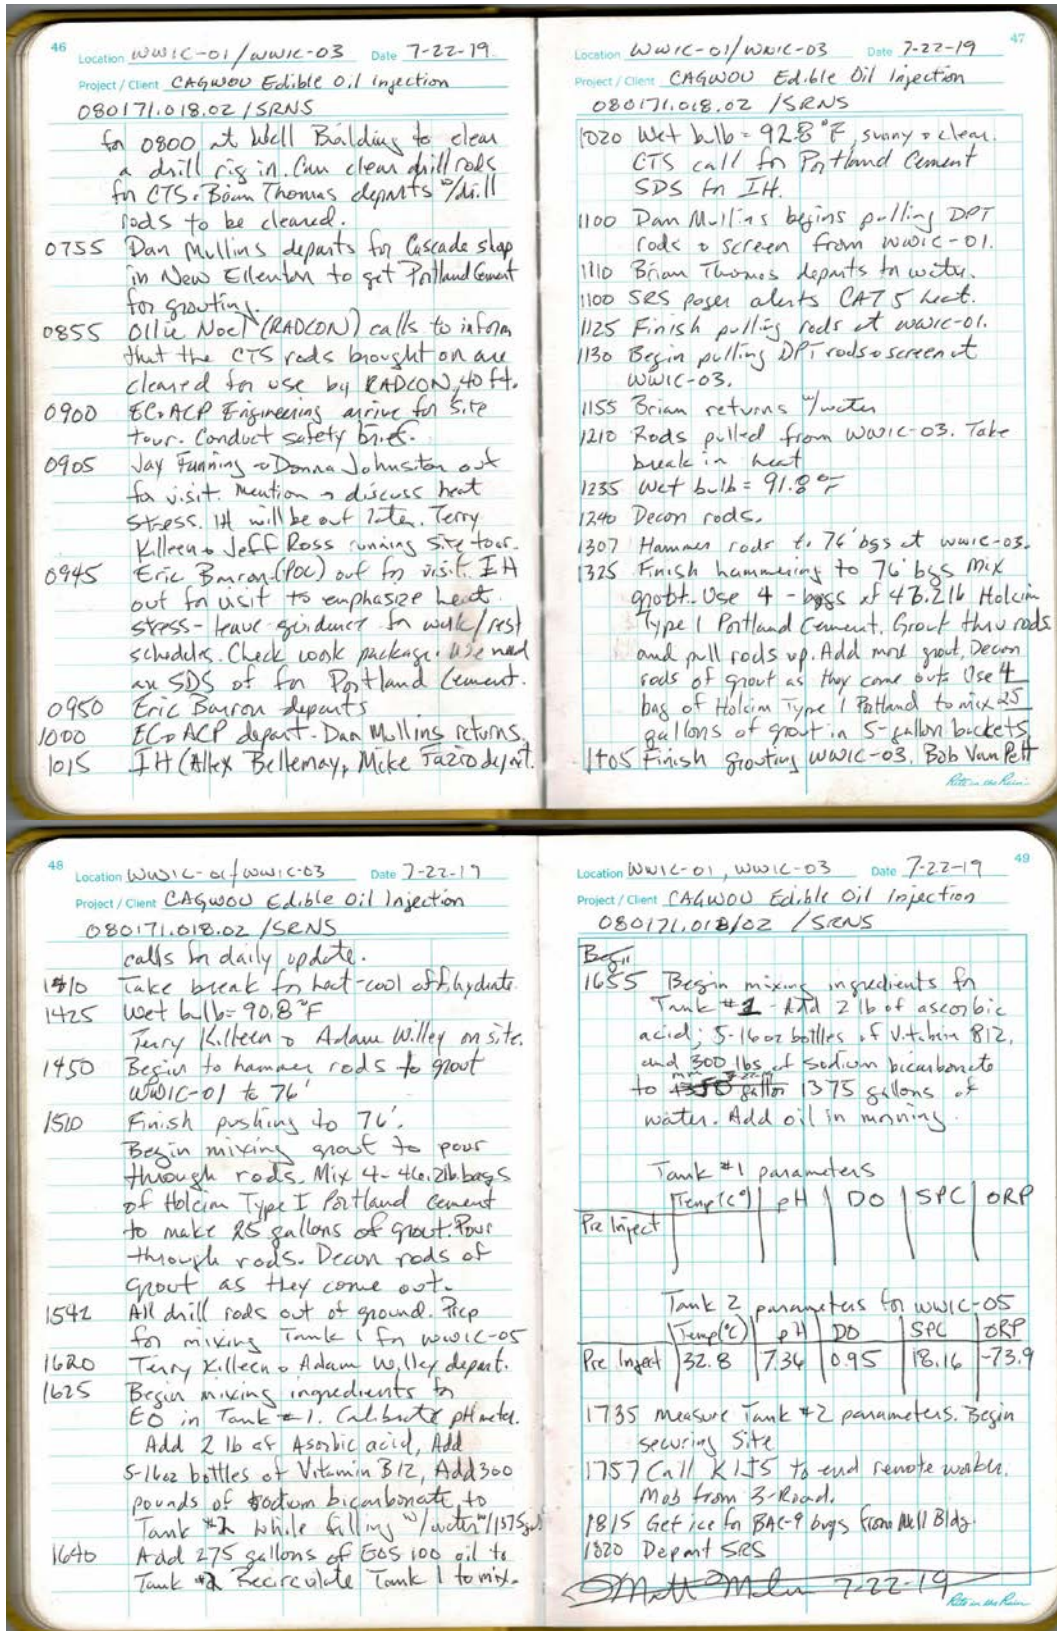 46
Location WWIC-01/WWIC-03 Date 7-22-19
Project / Client CAGWOU Edible Oil Injection
080171.018.02 /SRNS
for 0800 at Well Building to clear
a drill rig in. Can clear drill rods
for CTS. Brian Thomas departs w/drill
rods to be cleared.
0755 Dan Mullins departs for Cascade shop
in New Ellenton to get Portland Cement
for grouting.
0855 Ollie Noel (RADCON) calls to inform
that the CTS rods brought on are
cleared for use by RADCON, 40 ft.
0900 EC+ACP Engineering arrive for site
tour. Conduct safety brief.
0905 Jay Funning + Donna Johnston out
for visit. Mention + discuss heat
stress. IH will be out later. Terry
Killeen + Jeff Ross running site tour.
0945 Eric Barron (POC) out for visit. IH
out for visit to emphasize heat
stress - leave guidance for work/rest
schedules. Check work package. We need
an SDS of for Portland Cement.
0950 Eric Barron departs
1000 EC+ACP depart. Dan Mullins returns.
1015 IH (Allex Bellemay, Mike Fazio depart.
47
Location WWIC-01/WWIC-03 Date 7-22-19
Project / Client CAGWOU Edible Oil Injection
080171.018.02 /SRNS
1020 Wet bulb = 92.8 °F, sunny + clear.
CTS call for Portland Cement
SDS for IH.
1100 Dan Mullins begins pulling DPT
rods + screen from WWIC-01.
1110 Brian Thomas departs for water.
1100 SRS pager alerts CAT 5 heat.
1125 Finish pulling rods at WWIC-01.
1130 Begin pulling DPT rods + screen at
WWIC-03.
1155 Brian returns w/water
1210 Rods pulled from WWIC-03. Take
break in heat
1235 Wet bulb = 91.8 °F
1240 Decon rods.
1307 Hammer rods to 76' bgs at WWIC-03.
1325 Finish hammering to 76' bgs Mix
grout. Use 4 - bags of 46.2 lb Holcim
Type 1 Portland Cement. Grout thru rods
and pull rods up. Add more grout. Decon
rods of grout as they come out. Use 4
bag of Holcim Type 1 Portland to mix 25
gallons of grout in 5-gallon buckets
1405 Finish grouting WWIC-03. Bob Van Pelt
Rite in the Rain
48
Location WWIC-01/WWIC-03 Date 7-22-19
Project / Client CAGWOU Edible Oil Injection
080171.018.02 /SRNS
calls for daily update.
1410 Take break for heat-cool off, hydrate.
1425 Wet bulb = 90.8 °F
Terry Killeen + Adam Willey on site.
1450 Begin to hammer rods to grout
WWIC-01 to 76'
1510 Finish pushing to 76'.
Begin mixing grout to pour
through rods. Mix 4- 46.2lb. bags
of Holcim Type I Portland cement
to make 25 gallons of grout. Pour
through rods. Decon rods of
grout as they come out.
1542 All drill rods out of ground. Prep
for mixing Tank 1 for WWIC-05
1620 Terry Killeen + Adam Willey depart.
1625 Begin mixing ingredients for
EO in Tank #1. Calibrate pH meter.
Add 2 lb of Asorbic acid, Add
5-16oz bottles of Vitamin B12, Add 300
pounds of sodium bicarbonate, to
Tank #2 while filling w/water w/1375gal
1640 Add 275 gallons of EOS 100 oil to
Tank #2 Recirculate Tank 1 to mix.
49
Location WWIC-01, WWIC-03 Date 7-22-19
Project / Client CAGWOU Edible Oil Injection
080171.018/02 /SRNS
Begin
1655 Begin mixing ingredients for
Tank #1 - Add 2 lb of ascorbic
acid; 5-16oz bottles of Vitamin B12,
and 300 lbs of sodium bicarbonate
to 1350 gallon 1375 gallons of
water. Add oil in morning.
Tank #1 parameters
Temp(C°) pH DO SPC ORP
Pre Inject
Tank 2 parameters for WWIC-05
Temp(°C) pH DO SPC ORP
Pre Inject 32.8 7.36 0.95 18.16 -73.9
1735 Measure Tank #2 parameters. Begin
securing site
1757 Call K1J5 to end remote worker.
Mob from 3-Road.
1815 Get ice for BAC-9 bugs from Well Bldg.
1820 Depart SRS
7-22-19
Rite in the Rain